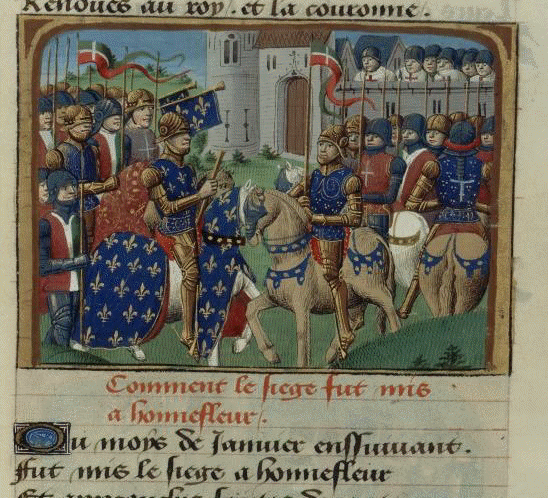 Renoues au roy. et la couronne.
Comment le siege fut mis
a honnefleur.
Du moys de Januier enssuiuant.
Fut mis le siege a honnefleur
Et